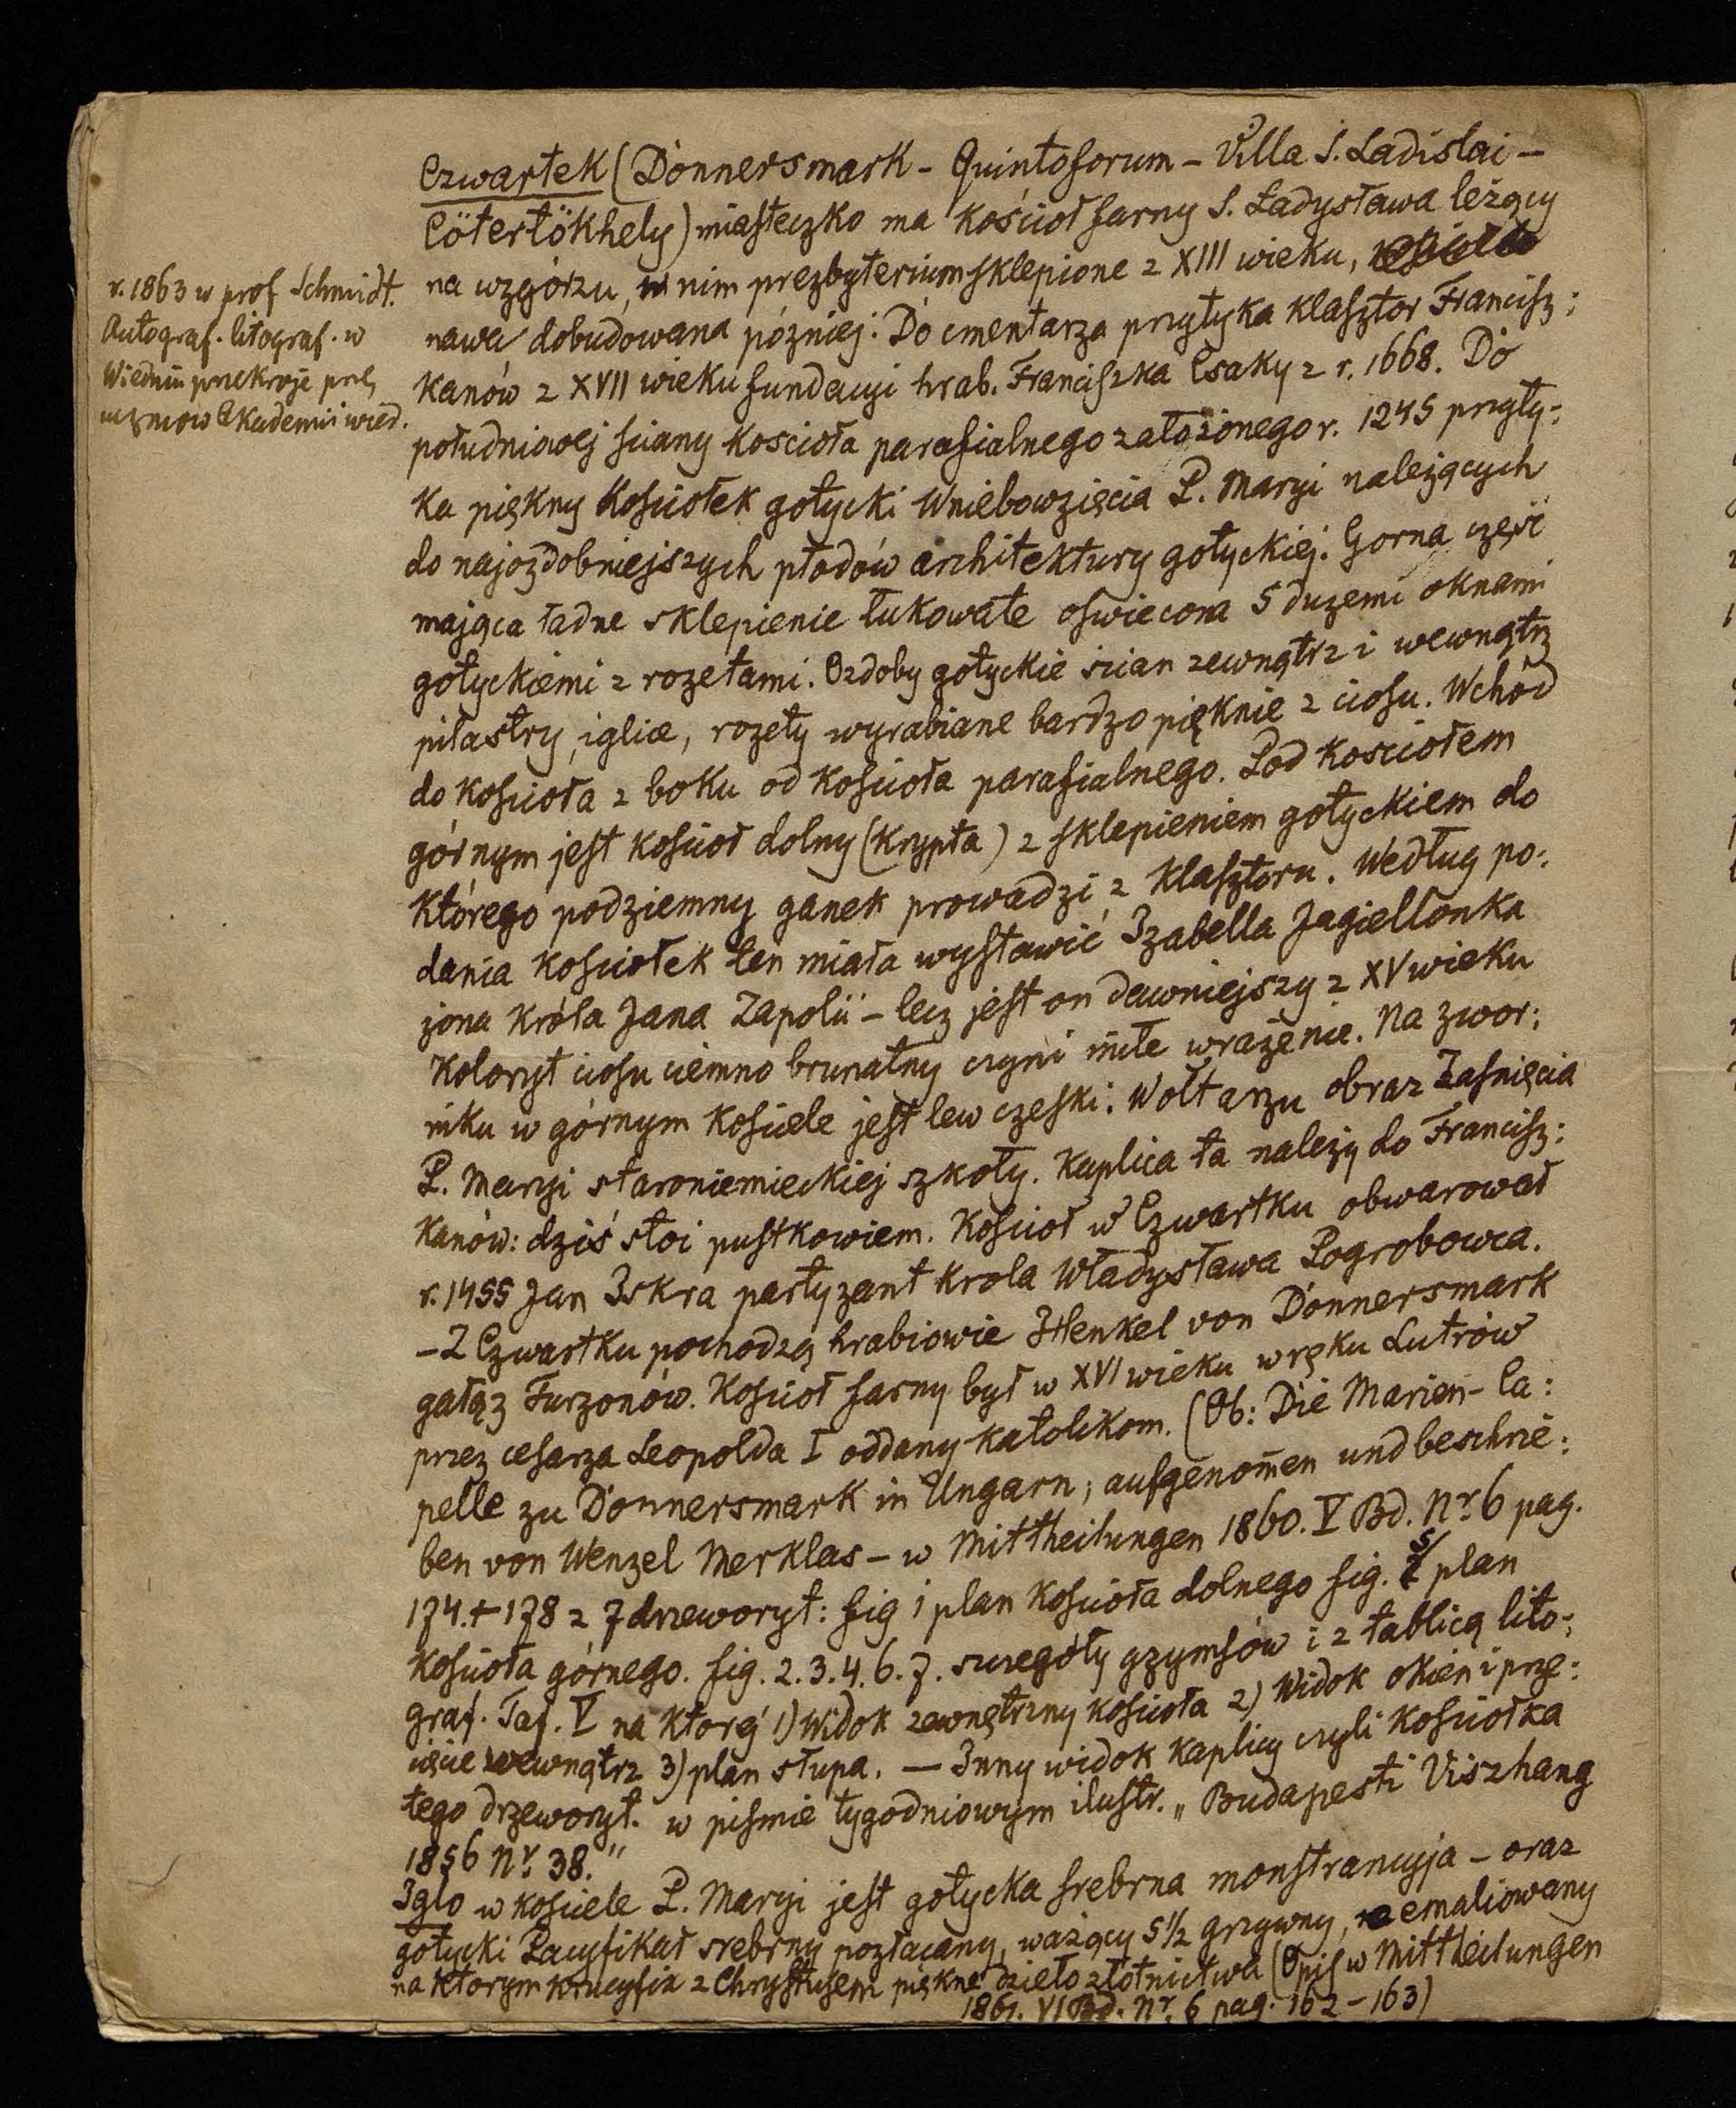 Czwartek (Donnersmark - Quintoforum - Villa S. Ladislai -
Cötertökhely) miasteczko ma kościoł farny S. Ładysława leżący
na wzgórzu, w nim prezbyterium sklepione z XIII wieku,
nawa dobudowana pózniej. Do cmentarza przytyka klasztor Francisz:
kanów z XVII wieku fundacyi hrab. Franciszka Csaky z r. 1668. Do
południowej sciany kościoła parafialnego założonego r. 1245 przyty:
ka piękny Kościołek gotycki Wniebowzięcia P. Maryi należących
do najozdobniejszych płodów architektury gotyckiej. Gorna część
mająca ładne sklepienie łukowate oswiecona 5 duzemi oknami
gotyckiemi z rozetami. Ozdoby gotyckie ścian zewnątrz i wewnątrz
pilastry, iglice, rozety wyrabiane bardzo pięknie z ciosu. Wchód
do kościoła z boku od kościoła parafialnego. Pod kościołem
górnym jest kościoł dolny (krypta) z sklepieniem gotyckiem do
którego podziemny ganek prowadzi z klasztoru. Według po:
dania kościołek ten miała wystawić Izabella Jagiellonka
żona króla Jana Zapolii - lecz jest on dawniejszy z XV wieku
Koloryt ciosu ciemno brunatny czyni miłe wrażenie. Na zwor:
niku w górnym kościele jest lew czeski. W ołtarzu obraz Zaśnięcia
P. Maryi staroniemieckiej szkoły. Kaplica ta należy do Francisz:
kanów: dziś stoi pustkowiem. Kościoł w Czwartku obwarował
r. 1455 Jan Iskra partyzant krola Władysława Pogrobowca.
- Z Czwartku pochodzą hrabiowie Henkel von Donnersmark
gałąz Turzonów. Kościoł farny był w XVI wieku w ręku Lutrów
przez cesarza Leopolda I oddany katolikom. (Ob: Die Marien- Ca:
pelle zu Donnersmark in Ungarn; aufgenom̄en und beschrie:
ben von Wenzel Merklas - w Mittheilungen 1860. V Bd. Nr. 6 pag.
174.+178 z 7 drzeworyt: fig 1 plan kościoła dolnego fig. 5/ plan
kościoła górnego. fig. 2. 3. 4. 6. 7. szczegóły gzymsów i z tablicą lito:
graf. Taf. V na ktorej 1) widok zewnętrzny kościoła 2) widok okien i prze:
cięcie wewnątrz 3) plan słupa. — Inny widok kaplicy czyli kościołka
tego drzeworyt. w piśmie tygodniowym ilustr. „Budapesti Viszhang
1856 Nr. 38."
Iglo w kościele P. Maryi jest gotycka srebrna monstrancyja - oraz
gotycki Pacyfikał srebrny pozłacany, ważący 5 1/2 grzywny, emaliowany
na ktorym krucyfix z Chrystusem piękne dzieło złotnictwa (Opis w Mittheilungen
1861. VI Bd. Nr. 6 pag. 162 - 163)
r. 1863 w prof Schmidt.
Autograf. litograf. w
Wiedniu przekroje prze
uczniow Akademii wied.